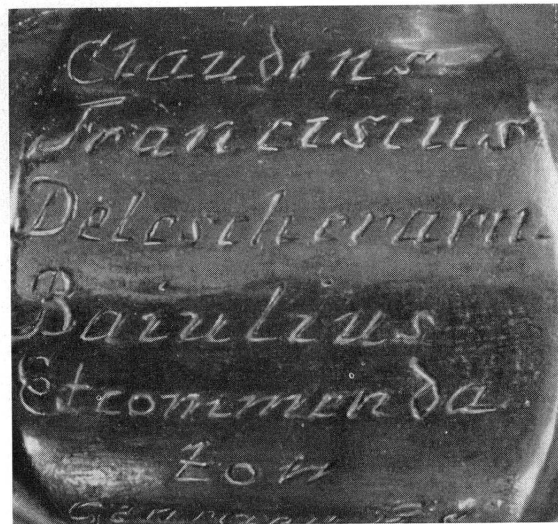 Claudius
Franciscus
Delescherarn-
Baiulius
Et commenda
ton